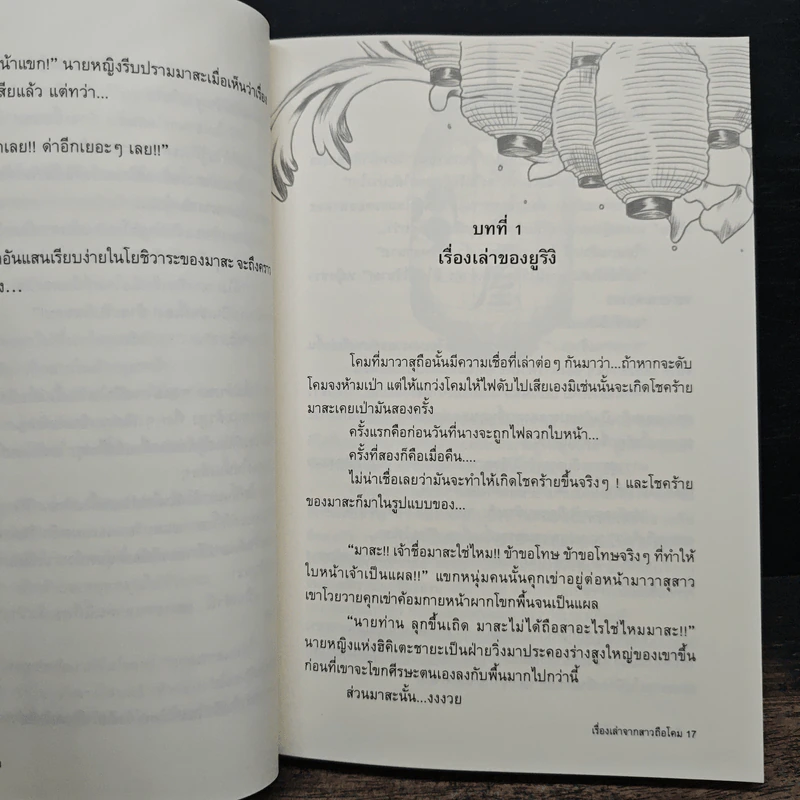 น้าแขก!” นายหญิงรีบปรามมาสะเมื่อเห็นว่าเรื่อง
สียแล้ว แต่ทว่า...
เลย!! ด่าอีกเยอะๆ เลย!!”
อันแสนเรียบง่ายในโยชิวาระของมาสะ จะถึงคราว
บทที่ 1
เรื่องเล่าของยูริงิ
โคมที่มาวาสุถือนั้นมีความเชื่อที่เล่าต่อๆ กันมาว่า...ถ้าหากจะดับ
โคมจงห้ามเป่า แต่ให้แกว่งโคมให้ไฟดับไปเสียเองมิเช่นนั้นจะเกิดโชคร้าย
มาสะเคยเป่ามันสองครั้ง
ครั้งแรกคือก่อนวันที่นางจะถูกไฟลวกใบหน้า...
ครั้งที่สองก็คือเมื่อคืน....
ไม่น่าเชื่อเลยว่ามันจะทำให้เกิดโชคร้ายขึ้นจริงๆ ! และโชคร้าย
ของมาสะก็มาในรูปแบบของ...
“มาสะ!! เจ้าชื่อมาสะใช่ไหม!! ข้าขอโทษ ข้าขอโทษจริงๆ ที่ทำให้
ใบหน้าเจ้าเป็นแผล!!” แขกหนุ่มคนนั้นคุกเข่าอยู่ต่อหน้ามาวาสุสาว
เขาโวยวายคุกเข่าค้อมกายหน้าผากโขกพื้นจนเป็นแผล
“นายท่าน ลุกขึ้นเถิด มาสะไม่ได้ถือสาอะไรใช่ไหมมาสะ!!”
นายหญิงแห่งฮิคิเตะชายะเป็นฝ่ายวิ่งมาประคองร่างสูงใหญ่ของเขาขึ้น
ก่อนที่เขาจะโขกศีรษะตนเองลงกับพื้นมากไปกว่านี้
ส่วนมาสะนั้น...งงงวย
เรื่องเล่าจากสาวถือโคม 17